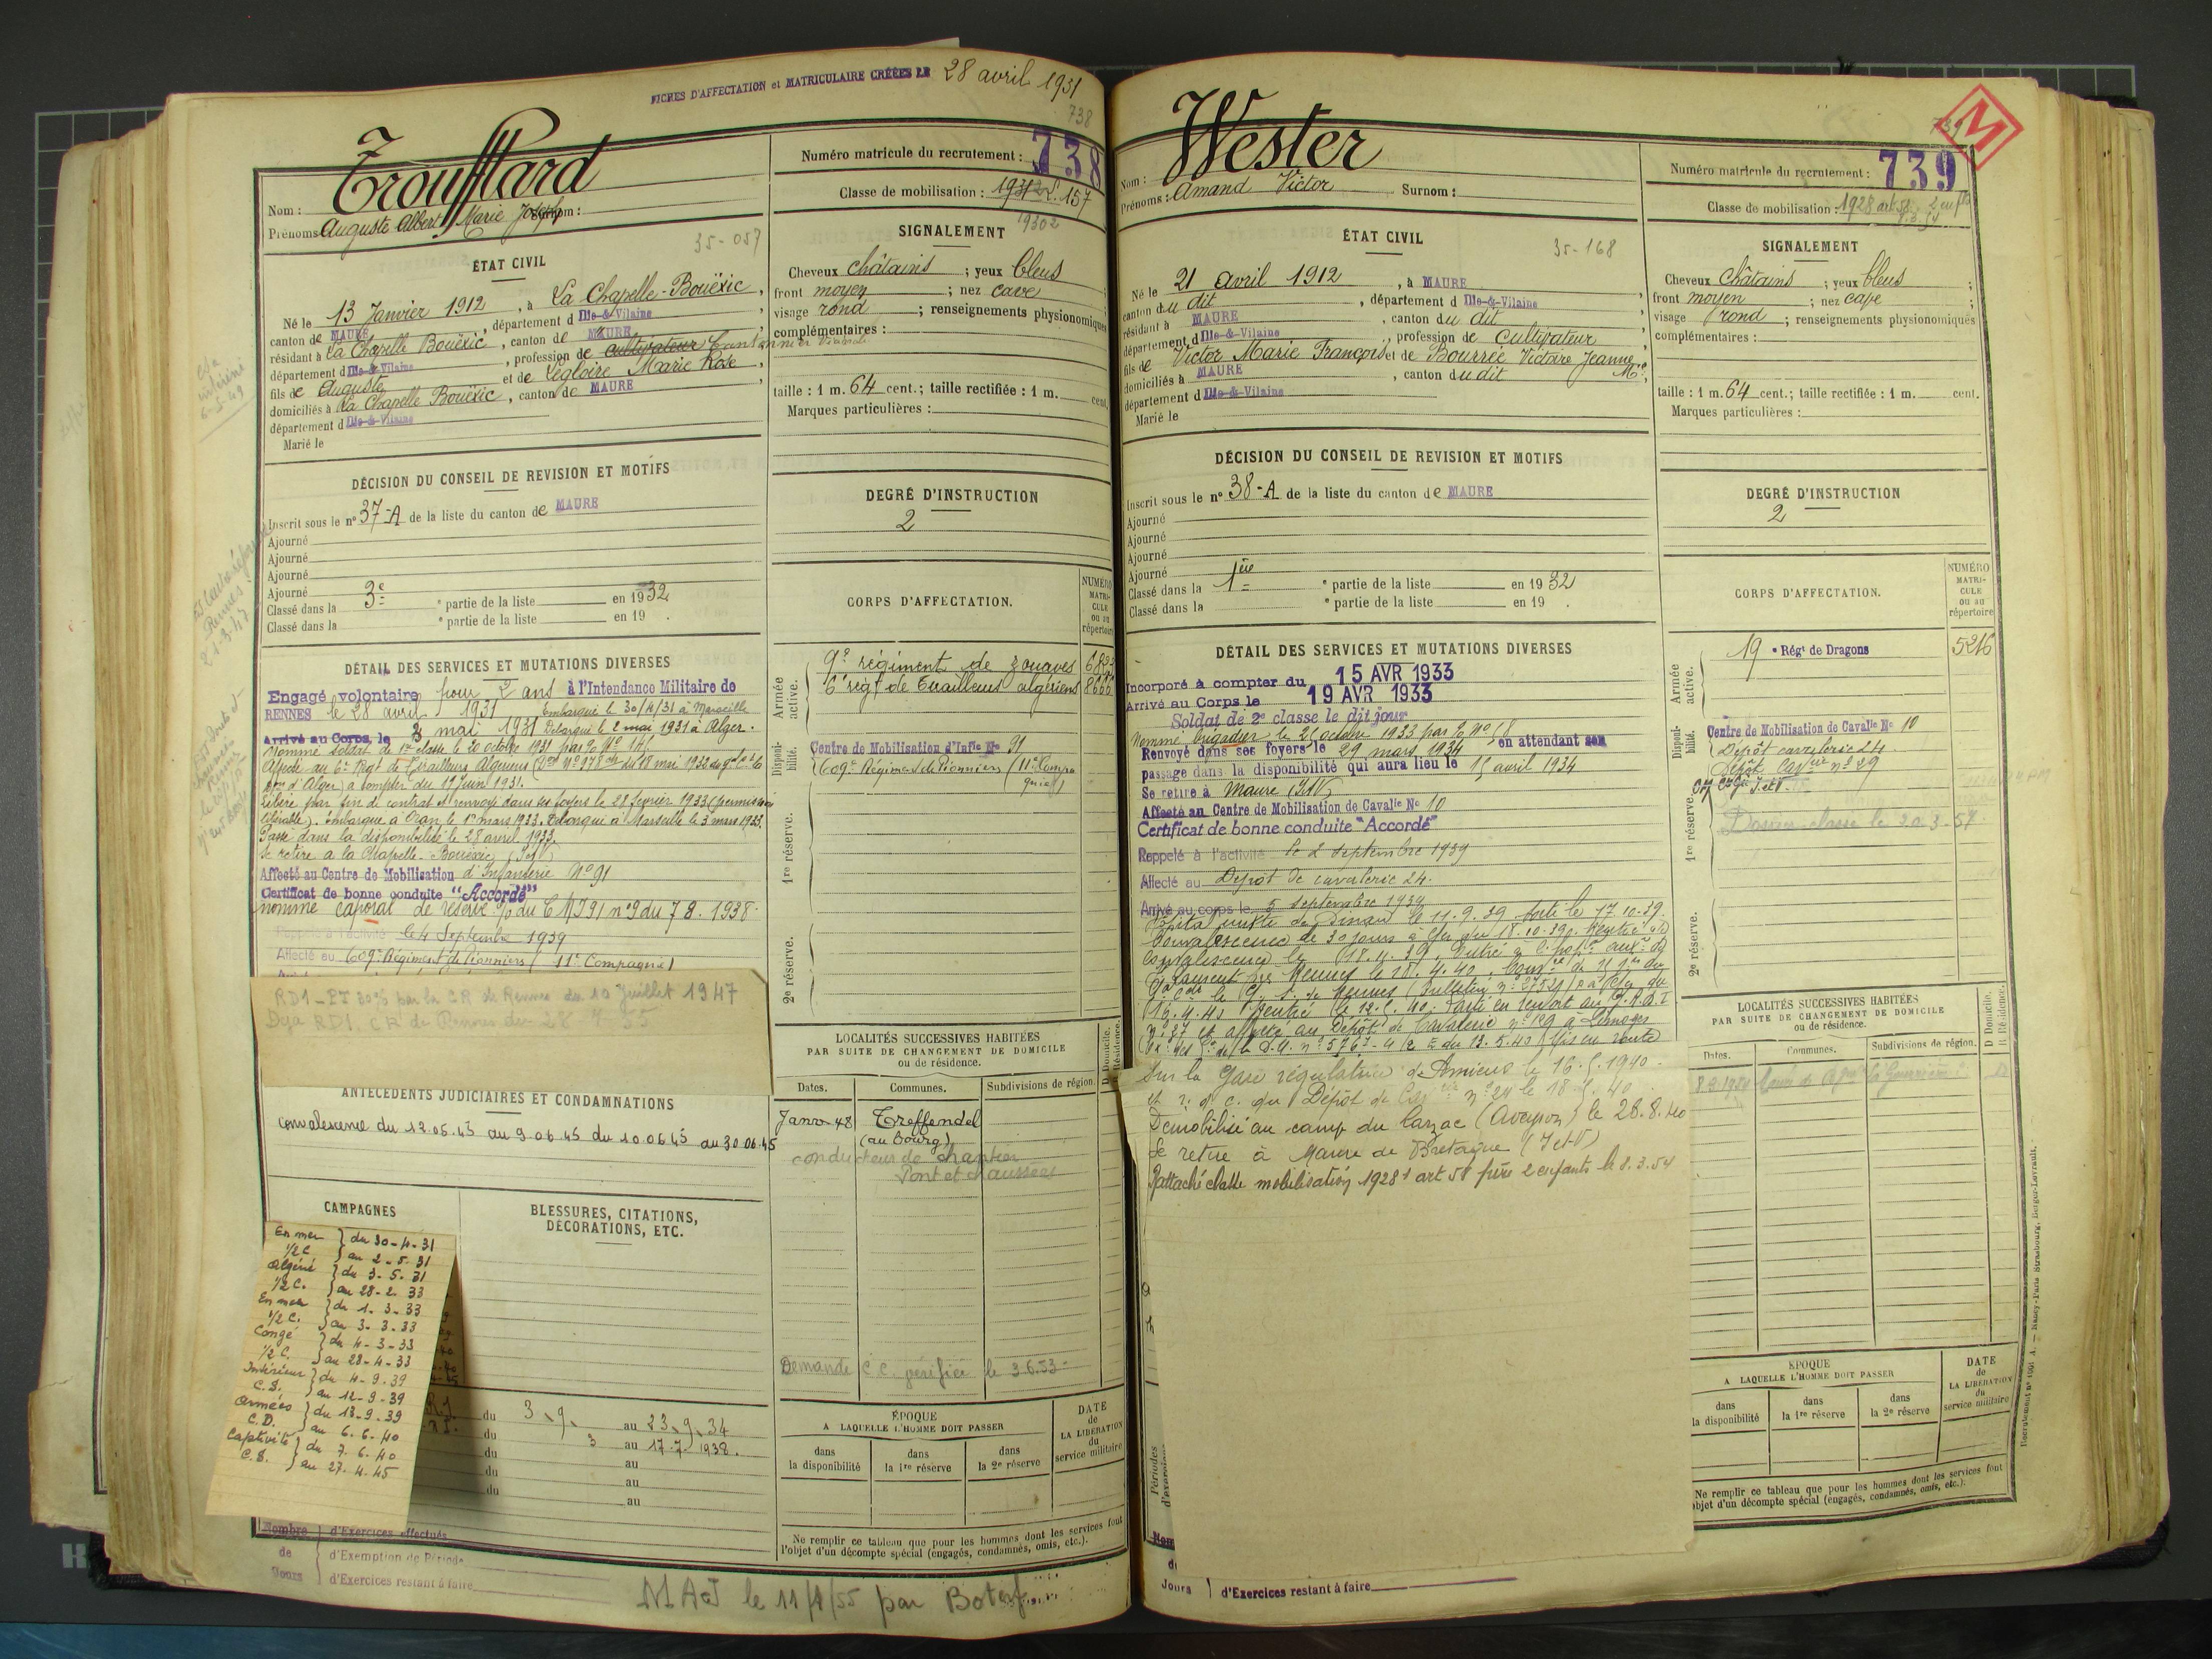 FICHES D'AFFECTATION et MATRICULAIRE CRÉÉES LE 28 avril 1931
738
Trouffland
Nom :
Prénoms Auguste Albert Marie Joseph Surnom :
35-057
ÉTAT CIVIL
Né le 13 Janvier 1912, à La Chapelle-Bouëxic,
canton de MAURE, département d Ille-&-Vilaine,
résidant à La Chapelle Bouëxic, canton de MAURE
département d Ille-&-Vilaine, profession de cultivateur Cantonnier
fils de Auguste et de Légloire Marie Rose,
domiciliés à La Chapelle Bouëxic, canton de MAURE,
département d Ille-&-Vilaine
Marié le
DÉCISION DU CONSEIL DE REVISION ET MOTIFS
Inscrit sous le n° 37-A de la liste du canton de MAURE
Ajourné
Ajourné
Ajourné
Ajourné
Classé dans la 3e partie de la liste en 1932
Classé dans la e partie de la liste en 19 .
DÉTAIL DES SERVICES ET MUTATIONS DIVERSES
Engagé volontaire pour 2 ans à l'Intendance Militaire de
RENNES le 28 avril 1931 Embarqué le 30/4/31 à Marseille
Arrivé au Corps, le 3 mai 1931 Débarqué le 2 mai 1931 à Alger.
Nommé soldat de 1re classe le 20 octobre 1931
Affecté au 6e Régt de Tirailleurs Algériens
d'Alger) à compter du 17 Juin 1931.
Libéré par fin de contrat et renvoyé dans ses foyers le 28 février 1933 (permission
libérable). Embarqué à Oran le 1er mars 1933. Débarqué à Marseille le 3 mars 1933.
Passé dans la disponibilité le 28 avril 1933.
Se retire à la Chapelle-Bouëxic (I et V)
Affecté au Centre de Mobilisation d'Infanterie N° 91
Certificat de bonne conduite "Accordé"
nommé caporal de réserve du CMI 91 n°9 du 7 8.1938.
Rappelé à l'activité le 4 Septembre 1939
Affecté au 609e Régiment de Pionniers (11e Compagnie)
RD1-PI 30% par la CR de Rennes du 10 Juillet 1947
Déjà RD1. CR de Rennes du 28.7.55
ANTÉCÉDENTS JUDICIAIRES ET CONDAMNATIONS
convalescence du 12.05.45 au 9.06.45 du 10.06.45 au 30.06.45
CAMPAGNES
En mer } du 30-4-31
1/2 C } au 2-5-31
Algérie } du 3-5-31
1/2 C. } au 28-2-33
En mer } du 1-3-33
1/2 C. } au 3-3-33
Congé } du 4-3-33
1/2 C. } au 28-4-33
Intérieur } du 4-9-39
C.S. } au 12-9-39
Armées } du 13-9-39
C.D. } au 6-6-40
Captivité } du 7-6-40
C.S. } au 27-4-45
BLESSURES, CITATIONS,
DÉCORATIONS, ETC.
du 3.9. au 23.9.34
du 3 au 17.7.1938.
du au
du au
du au
Nombre d'Exercices effectués
de d'Exemption de Période
Jours d'Exercices restant à faire
MAJ le 11/8/55 par Boterf
Numéro matricule du recrutement : 738
Classe de mobilisation : 1931 157
19302
SIGNALEMENT
Cheveux châtains ; yeux bleus
front moyen ; nez cave
visage rond ; renseignements physionomiques
complémentaires :
taille : 1 m. 64 cent.; taille rectifiée : 1 m. cent.
Marques particulières :
DEGRÉ D'INSTRUCTION
2
CORPS D'AFFECTATION.
NUMÉRO
MATRI-
CULE
ou au
répertoire
Armée active.
9e régiment de zouaves
6e régt de Tirailleurs algériens
Disponibilité.
Centre de Mobilisation d'Infie N° 91
609e Régiment de Pionniers (11e Compagnie)
1re réserve.
2e réserve.
LOCALITÉS SUCCESSIVES HABITÉES
PAR SUITE DE CHANGEMENT DE DOMICILE
ou de résidence.
D Domicile.
R Résidence.
Dates. Communes. Subdivisions de région.
Janv 48 Treffendel
(au bourg)
conducteur de chantier
Pont et chaussées
Demande C.C. vérifiée le 3.6.53-
ÉPOQUE
A LAQUELLE L'HOMME DOIT PASSER
DATE
de
LA LIBÉRATION
du
service militaire
dans la disponibilité
dans la 1re réserve
dans la 2e réserve
Ne remplir ce tableau que pour les hommes dont les services font
l'objet d'un décompte spécial (engagés, condamnés, omis, etc.).
Wester
Nom :
Prénoms : Amand Victor Surnom :
35-168
ÉTAT CIVIL
Né le 21 avril 1912, à MAURE
canton du dit, département d Ille-&-Vilaine,
résidant à MAURE, canton du dit
département d Ille-&-Vilaine, profession de cultivateur
fils de Victor Marie François et de Bourrée Victoire Jeanne Mie,
domiciliés à MAURE, canton du dit
département d Ille-&-Vilaine
Marié le
DÉCISION DU CONSEIL DE REVISION ET MOTIFS
Inscrit sous le n° 38-A de la liste du canton de MAURE
Ajourné
Ajourné
Ajourné
Ajourné
Classé dans la 1ère e partie de la liste en 1932
Classé dans la e partie de la liste en 19 .
DÉTAIL DES SERVICES ET MUTATIONS DIVERSES
Incorporé à compter du 15 AVR 1933
Arrivé au Corps le 19 AVR 1933
Soldat de 2e classe le dit jour
Nommé brigadier le 21 octobre 1933
Renvoyé dans ses foyers le 29 mars 1934 en attendant son
passage dans la disponibilité qui aura lieu le 15 avril 1934
Se retire à Maure (I&V)
Affecté au Centre de Mobilisation de Cavalie N° 10
Certificat de bonne conduite "Accordé"
Rappelé à l'activité le 2 septembre 1939
Affecté au Dépôt de cavalerie 24.
Arrivé au corps le 5 septembre 1939
Hôpital mixte de Dinan le 11.9.39 sorti le 17.10.39.
Convalescence de 30 jours à du 18.10.39. Rentré de
convalescence le 18.11.39. Entré à
St Laurent Rennes le 28.4.40.
Rennes (bulletin
Rentré le 12.5.40. Parti en renfort
n° 37 et affecté au Dépôt de Cavalerie n° 29 à Limoges
du 13.5.40) Mis en route
sur la Gare régulatrice d'Amiens le 16.5.1940-
Dépôt de n° 24 le 18.5.40.
Démobilisé au camp du Larzac (Aveyron) le 28.8.40
Se retire à Maure de Bretagne (I et V)
Rattaché classe mobilisation 1928 art 58 père 2 enfants le 8.3.54
Périodes
Jours d'Exercices restant à faire
739
M
Numéro matricule du recrutement : 739
Classe de mobilisation : 1928 art 58. 2 enfts
8.3.54
SIGNALEMENT
Cheveux châtains ; yeux bleus ;
front moyen ; nez cave ;
visage rond ; renseignements physionomiques
complémentaires :
taille : 1 m. 64 cent.; taille rectifiée : 1 m. cent.
Marques particulières :
DEGRÉ D'INSTRUCTION
2
CORPS D'AFFECTATION.
NUMÉRO
MATRI-
CULE
ou au
répertoire
Armée active.
19 e Régt de Dragons 5216
Disponibilité.
Centre de Mobilisation de Cavalie N° 10
Dépôt cavalerie 24.
Dépôt Caverie n° 29
1re réserve.
Dossier classé le 20.3.57.
2e réserve.
LOCALITÉS SUCCESSIVES HABITÉES
PAR SUITE DE CHANGEMENT DE DOMICILE
ou de résidence.
D Domicile.
R Résidence.
Dates. Communes. Subdivisions de région.
ÉPOQUE
A LAQUELLE L'HOMME DOIT PASSER
DATE
de
LA LIBÉRATION
du
service militaire
dans la disponibilité
dans la 1re réserve
dans la 2e réserve
Ne remplir ce tableau que pour les hommes dont les services font
objet d'un décompte spécial (engagés, condamnés, omis, etc.).
Nancy-Paris-Strasbourg, Berger-Levrault.